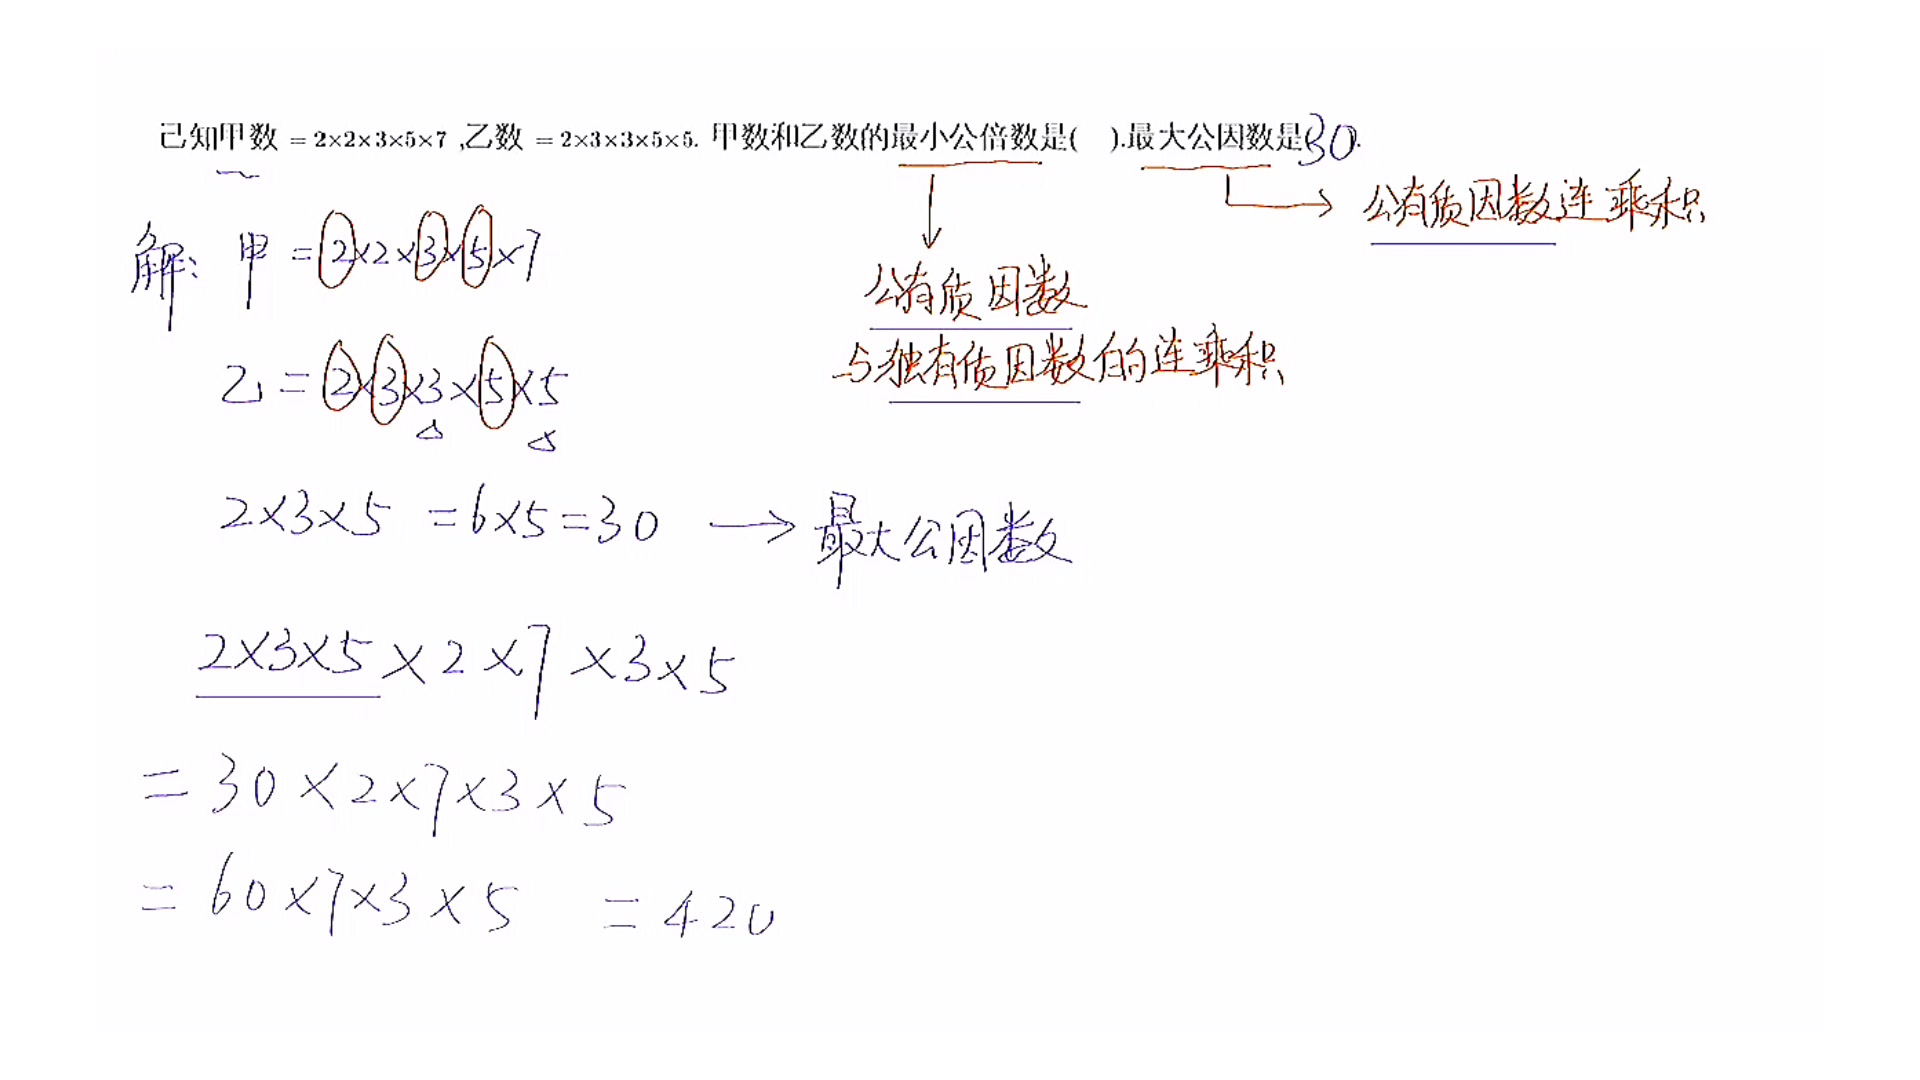 已知甲数 = 2×2×3×5×7 ,乙数 = 2×3×3×5×5. 甲数和乙数的最小公倍数是(   ).最大公因数是(30.
公有质因数连乘积
解: 甲 = 2×2×3×5×7
公有质因数
与独有质因数的连乘积
乙 = 2×3×3×5×5
2×3×5 =6×5=30 → 最大公因数
2×3×5×2×7×3×5
= 30×2×7×3×5
= 60×7×3×5 = 420